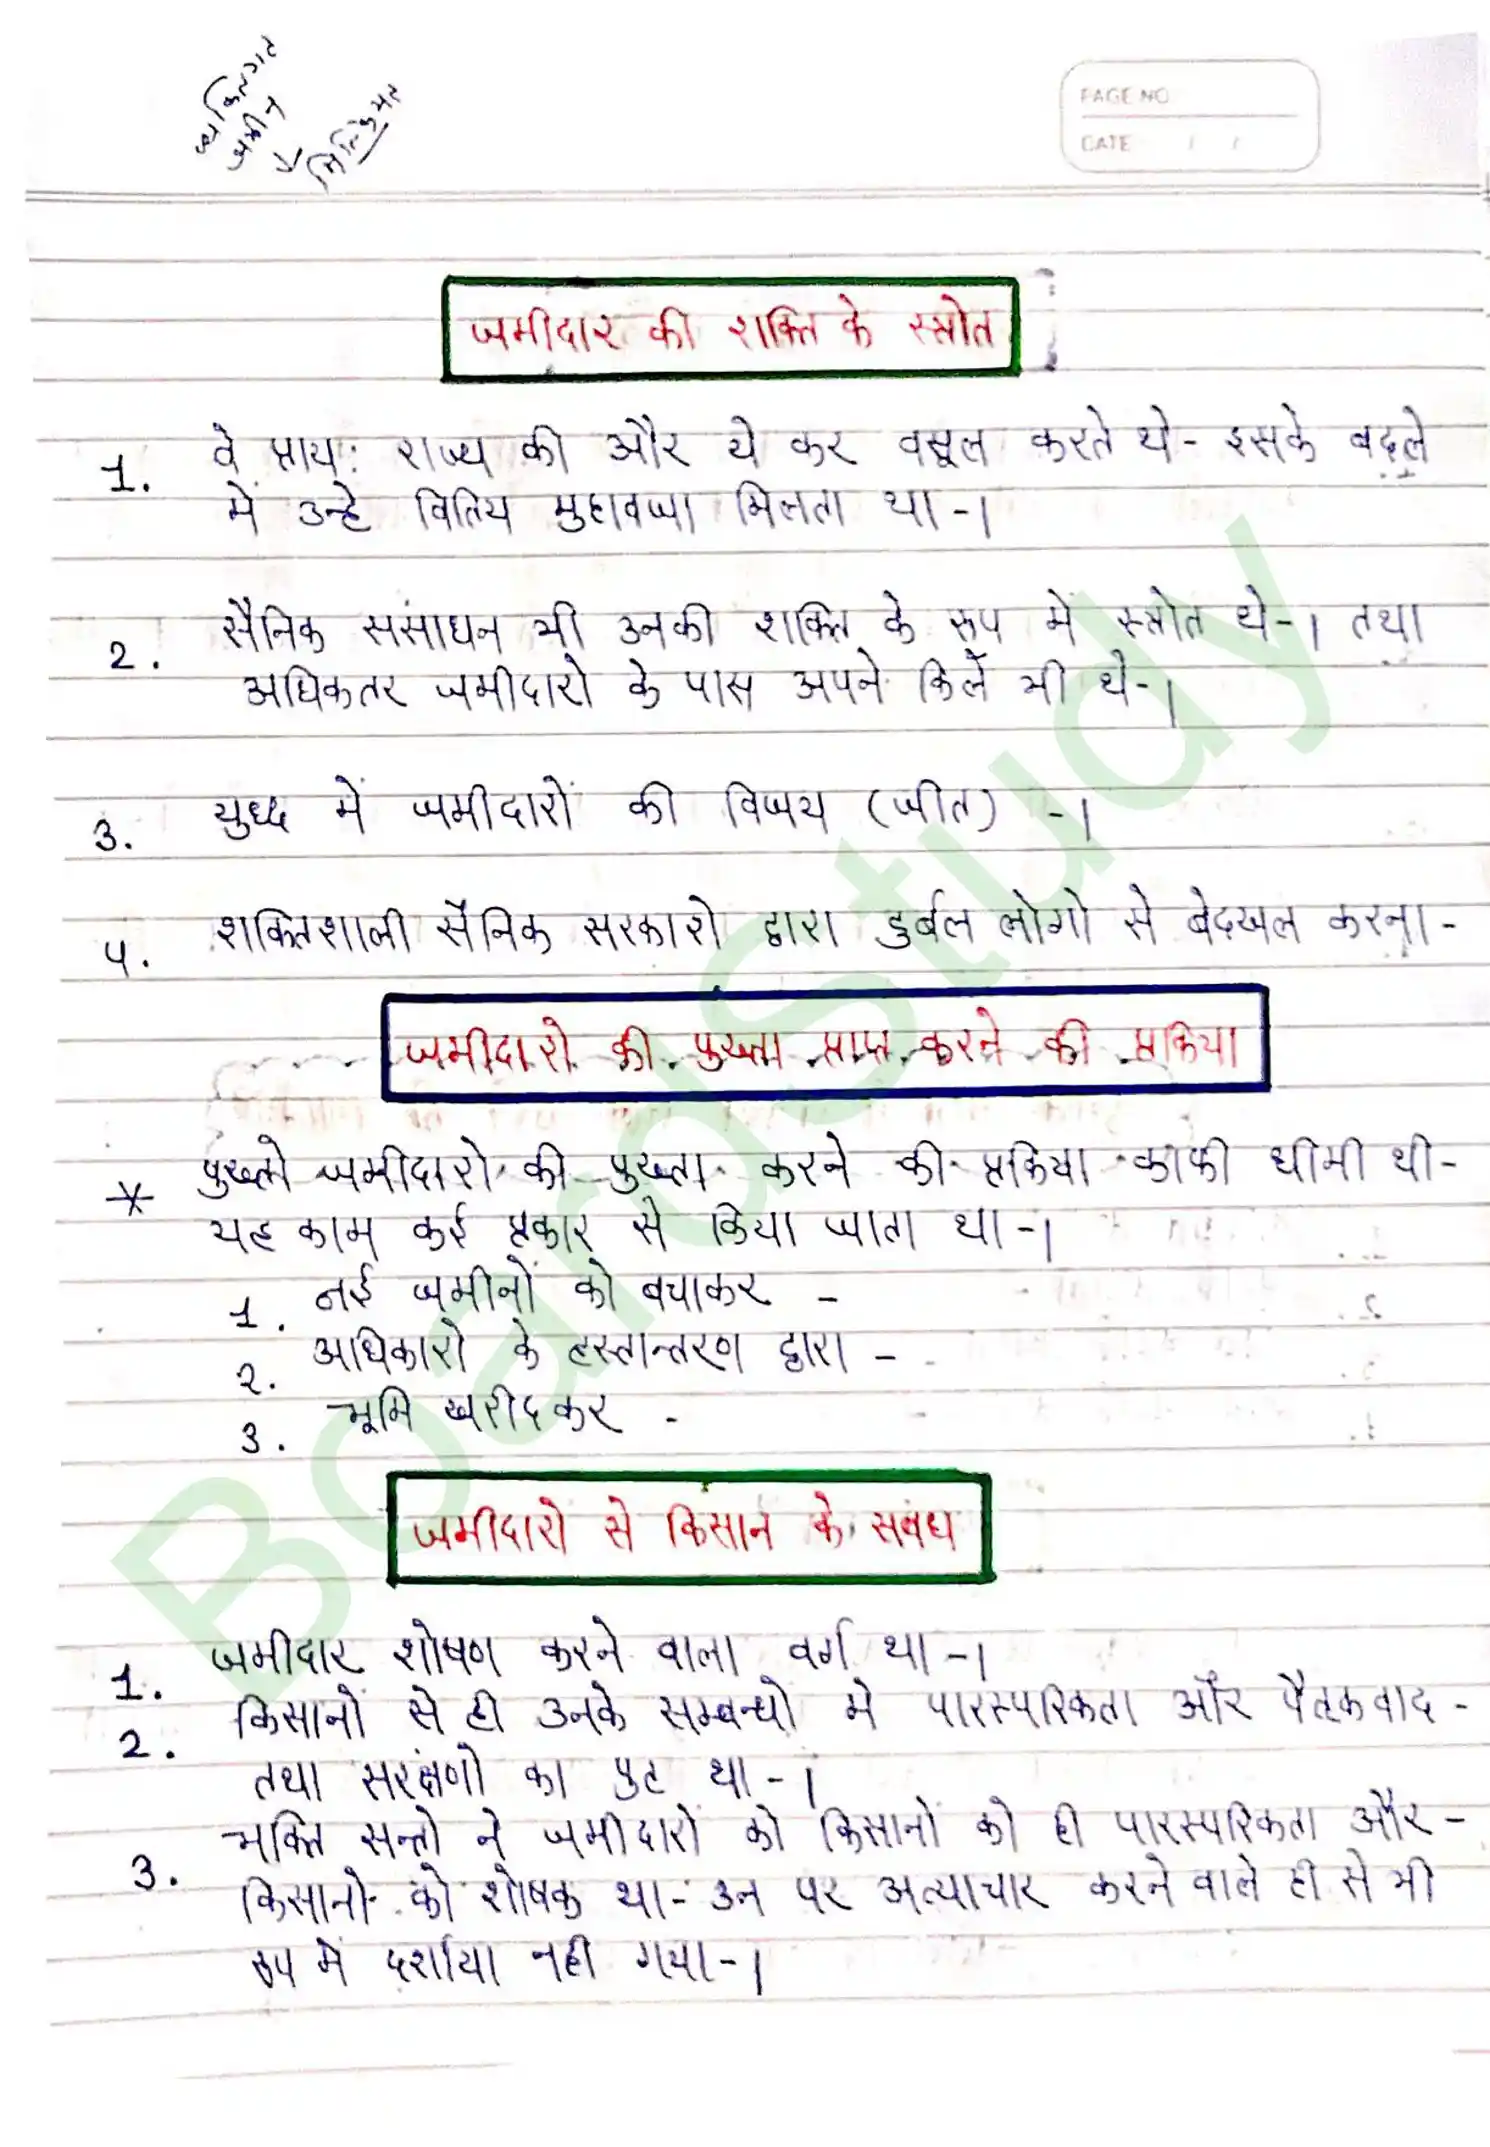 व्यक्तिगत
जमीन
मिल्कियत
PAGE NO.
DATE / /
जमीदार की शक्ति के स्त्रोत
1. वे प्राय: राज्य की और ये कर वसूल करते थे- इसके बदले
में उन्हे वितिय मुहावजा मिलता था-।
2. सैनिक ससांघन भी उनकी शक्ति के रूप में स्त्रोत थे-। तथा
अधिकतर जमीदारो के पास अपने किलें भी थे-।
3. युध्द में जमीदारों की विजय (जीत) -।
4. शक्तिशाली सैनिक सरकारो द्वारा दुर्बल लोगो से बेदखल करना-
जमीदारो की पुख्ता प्राप्त करने की प्रकिया
* पुख्तो जमीदारो की पुख्ता करने की प्रकिया काफी धीमी थी-
यह काम कई प्रकार से किया जाता था-।
1. नई जमीनों को बचाकर -
2. अधिकारो के हस्तान्तरण द्वारा -
3. भूमि खरीदकर -
जमीदारो से किसान के सबंध
1. जमीदार शोषण करने वाला वर्ग था-।
2. किसानों से ही उनके सम्बन्धो मे पारस्परिकता और पैतृकवाद -
तथा सरंक्षणो का पुट था-।
3. भक्ति सन्तो ने जमीदारों को किसानों को ही पारस्परिकता और-
किसानो को शोषक था- उन पर अत्याचार करने वाले ही से भी
रूप में दर्शाया नही गया-।
BoardStudy